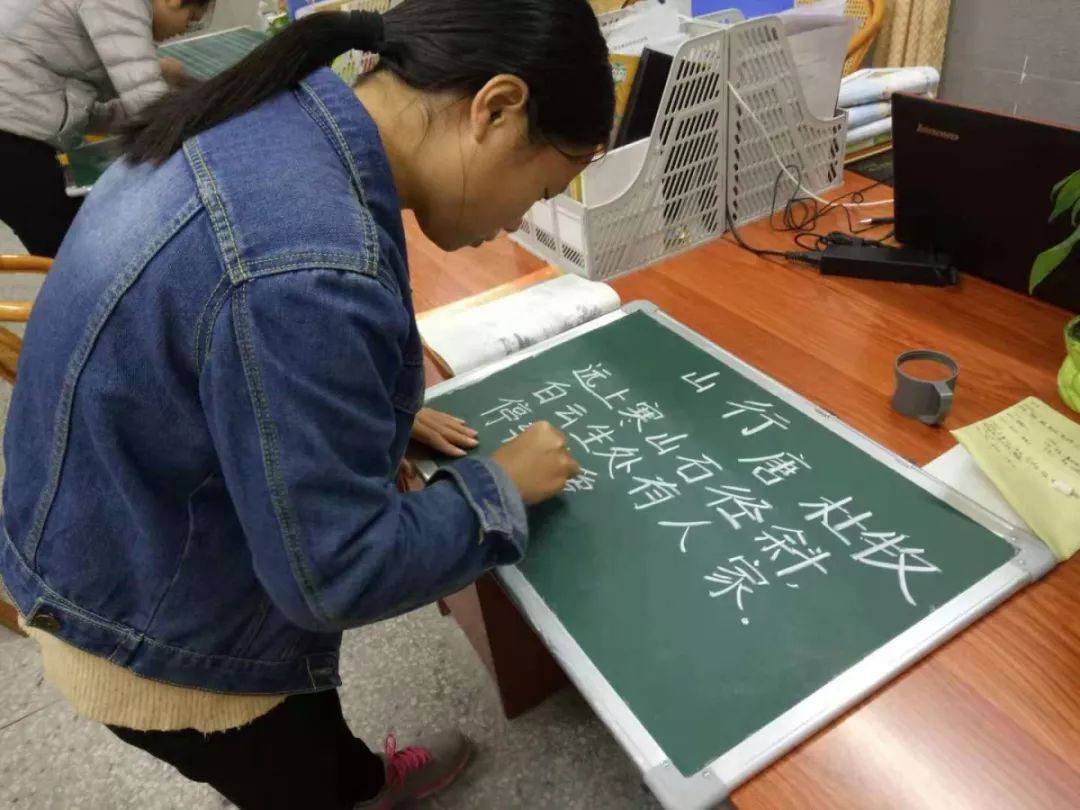 山行 唐 杜牧
远上寒山石径斜,
白云生处有人家.
停
lenovo